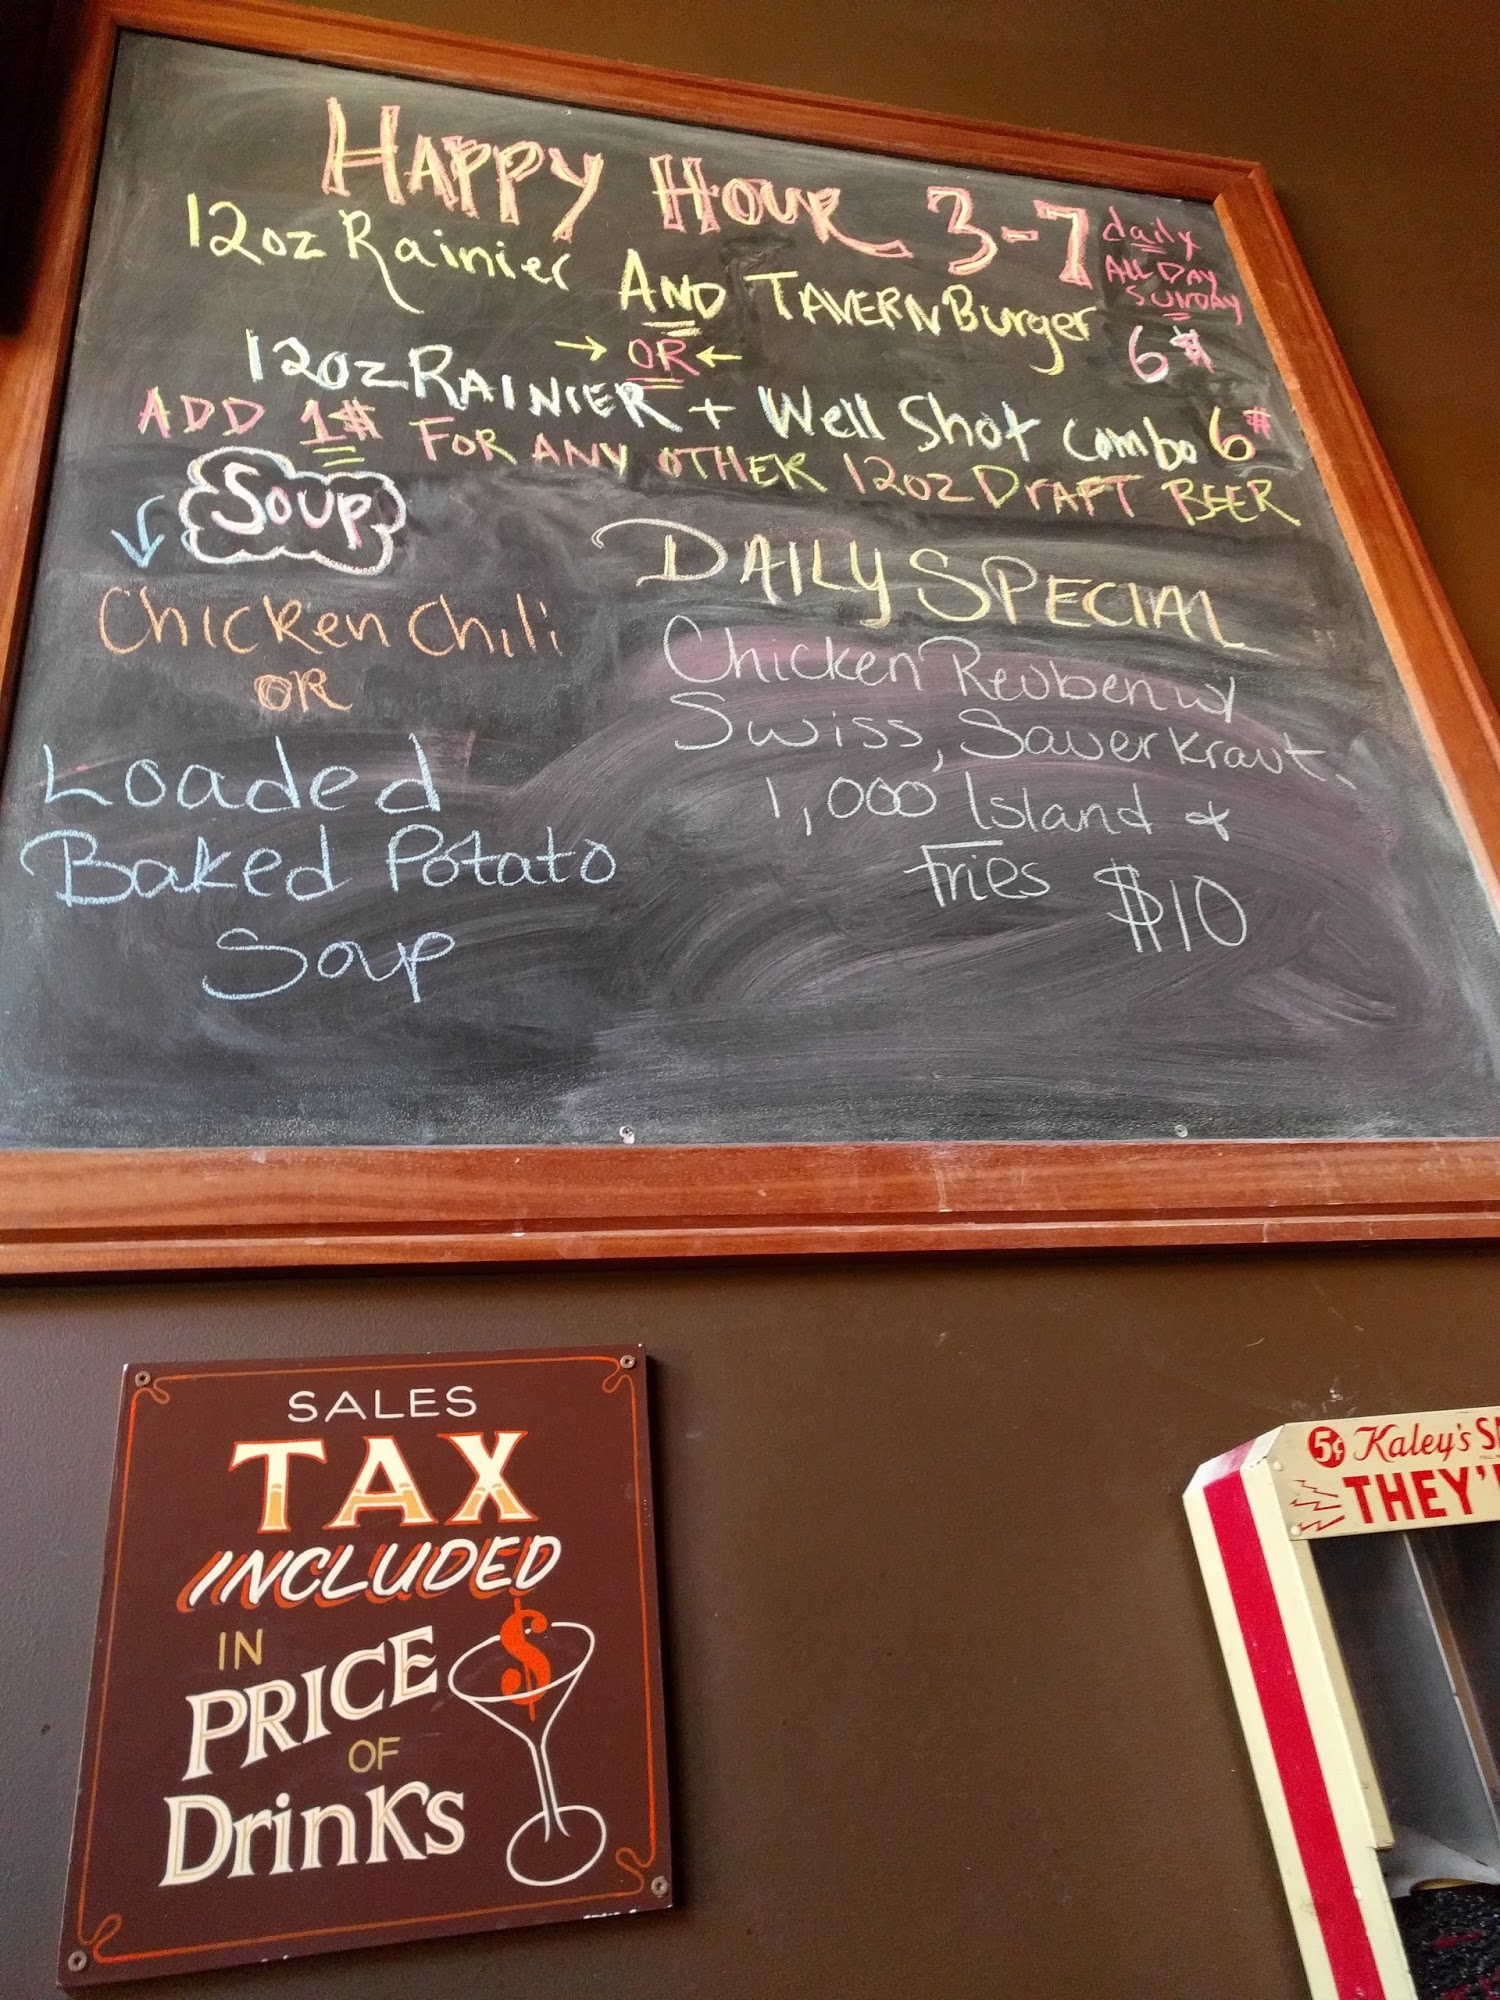 HAPPY HOUR 3-7
daily
ALL DAY
SUNDAY
12oz Rainier AND TAVERN Burger 6$
→ OR ←
12oz RAINIER + Well Shot Combo 6$
ADD 1$ FOR ANY OTHER 12oz DRAFT BEER
Soup
Chicken Chili
OR
Loaded
Baked Potato
Soup
DAILY SPECIAL
Chicken Reuben w/
Swiss, Sauerkraut,
1,000 Island &
Fries $10
SALES
TAX
INCLUDED
IN
PRICE
OF
Drinks
$
5¢ Kaley's
THEY'